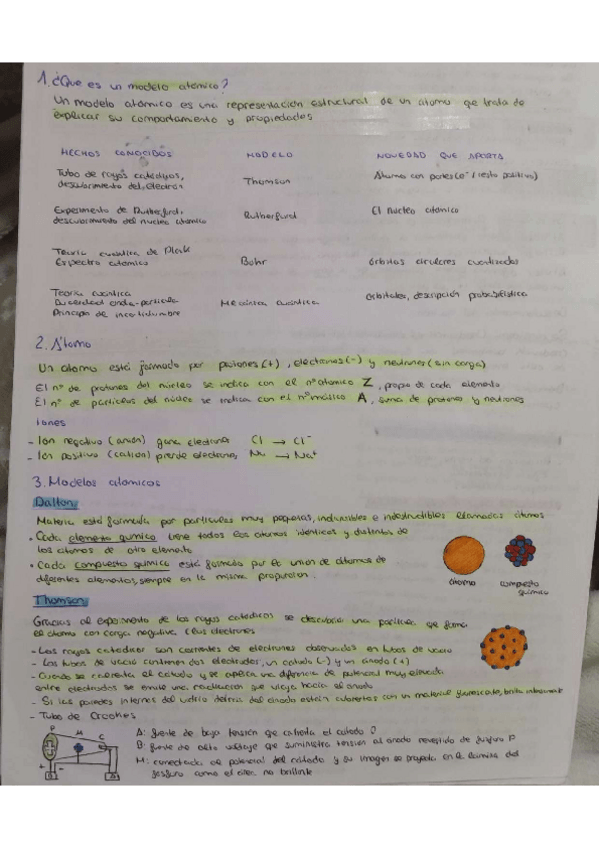 1. ¿Que es un modelo atómico?
Un modelo atómico es una representación estructural de un átomo que trata de
explicar su comportamiento y propiedades
HECHOS CONOCIDOS MODELO NOVEDAD QUE APORTA
Tubo de rayos catódicos, Thomson Átomo con partes (e⁻ / resto positivo)
descubrimiento del electrón
Experimento de Rutherford, Rutherford El núcleo atómico
descubrimiento del núcleo atómico
Teoría cuántica de Plank
Espectro atómico Bohr órbitas circulares cuantizadas
Teoría cuántica Orbitales, descripción probabilística
Dualidad onda-partícula Mecánica cuántica
Principio de incertidumbre
2. Átomo
Un átomo está formado por protones (+), electrones (-) y neutrones (sin carga)
El nº de protones del núcleo se indica con el nº atómico Z, propio de cada elemento
El nº de partículas del núcleo se indica con el nº másico A, suma de protones y neutrones
Iones
- Ión negativo (anión) gana electrones Cl → Cl⁻
- Ión positivo (catión) pierde electrones, Na → Na⁺
3. Modelos atómicos
Dalton
Materia está formada por partículas muy pequeñas, indivisibles e indestructibles llamadas átomos
• Cada elemento químico tiene todos los átomos idénticos y distintos de
los átomos de otro elemento
• Cada compuesto químico está formado por la unión de átomos de
diferentes elementos, siempre en la misma proporción.
átomo compuesto
químico
Thomson
Gracias al experimento de los rayos catódicos se descubrió una partícula que forma
el átomo con carga negativa: los electrones
- Los rayos catódicos son corrientes de electrones observados en tubos de vacío
- Los tubos de vacío contienen dos electrodos, un cátodo (-) y un ánodo (+)
- Cuando se calienta el cátodo y se aplica una diferencia de potencial muy elevada
entre electrodos se emite una radiación que viaja hacia el ánodo
- Si las paredes internas del vidrio detrás del ánodo están cubiertas con un material fluorescente, brilla
- Tubo de Crookes
P M C
+ -
A: fuente de baja tensión que calienta el cátodo C
B: fuente de alto voltaje que suministra tensión al ánodo revestido de fósforo P
M: conectada al potencial del cátodo y su imagen se proyecta en la lámina del
fósforo como el área no brillante